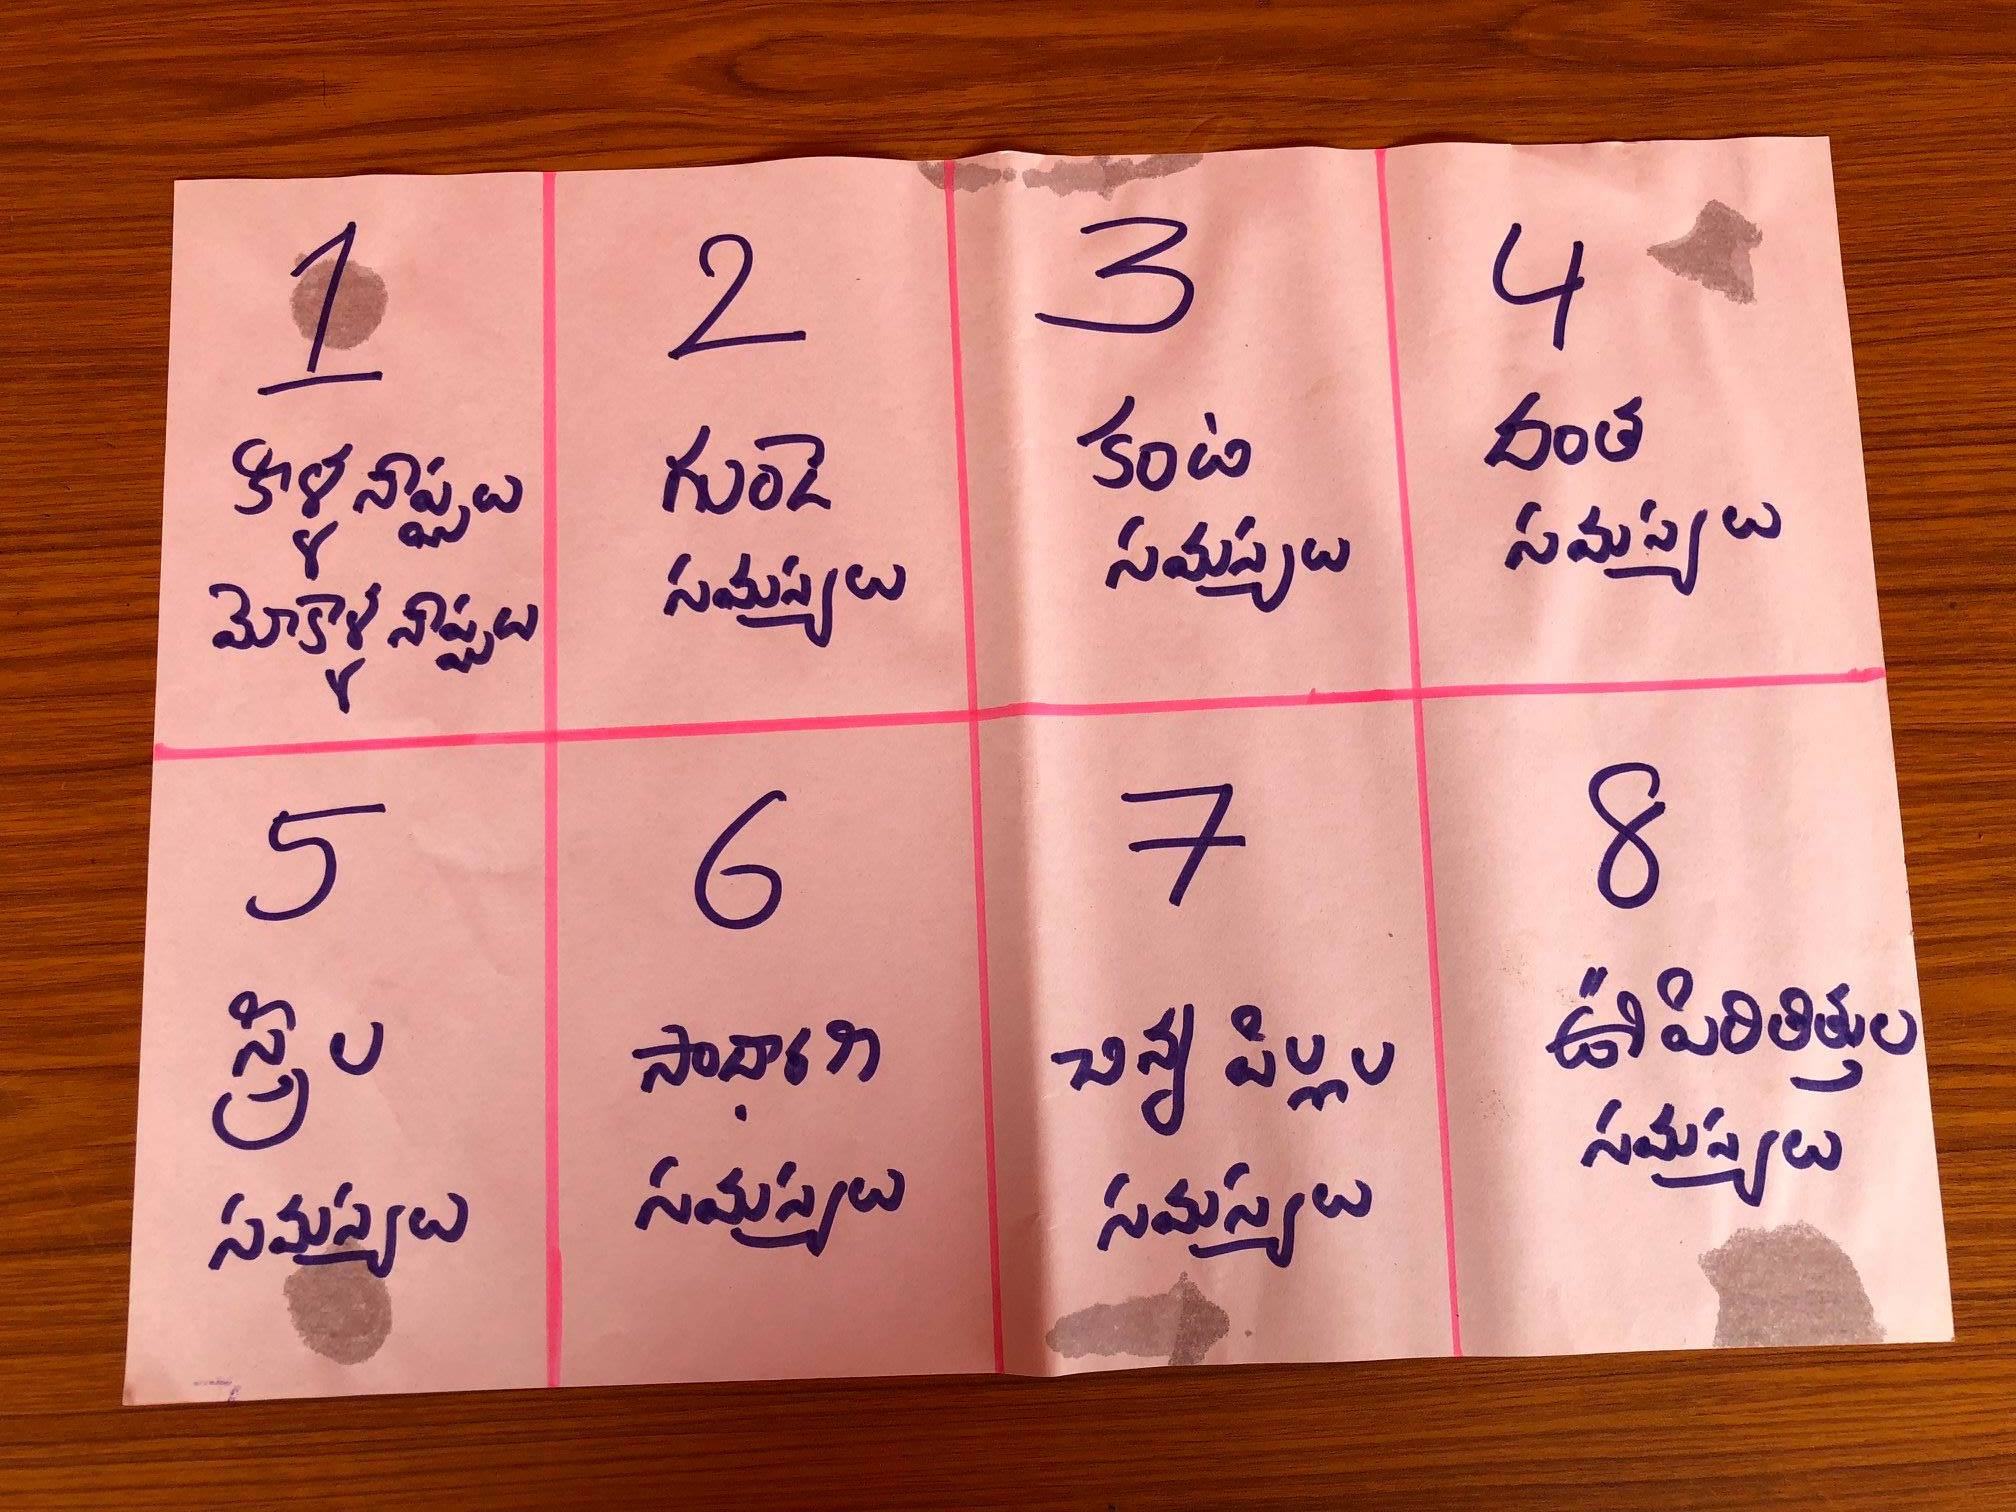 1
కాళ్ళ నొప్పులు
మోకాళ్ళ నొప్పులు
2
గుండె
సమస్యలు
3
కంటి
సమస్యలు
4
దంత
సమస్యలు
5
స్త్రీల
సమస్యలు
6
సాదారణ
సమస్యలు
7
చిన్న పిల్లల
సమస్యలు
8
ఊపిరితిత్తుల
సమస్యలు